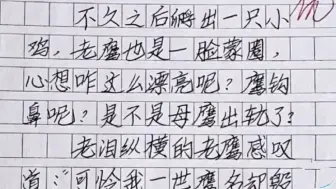 不久之后孵出一只小
鸡,老鹰也是一脸蒙圈,
心想咋这么漂亮呢?鹰钩
鼻呢?是不是母鹰出轨了?
老泪纵横的老鹰感叹
道:"可怜我一世鹰名却毁